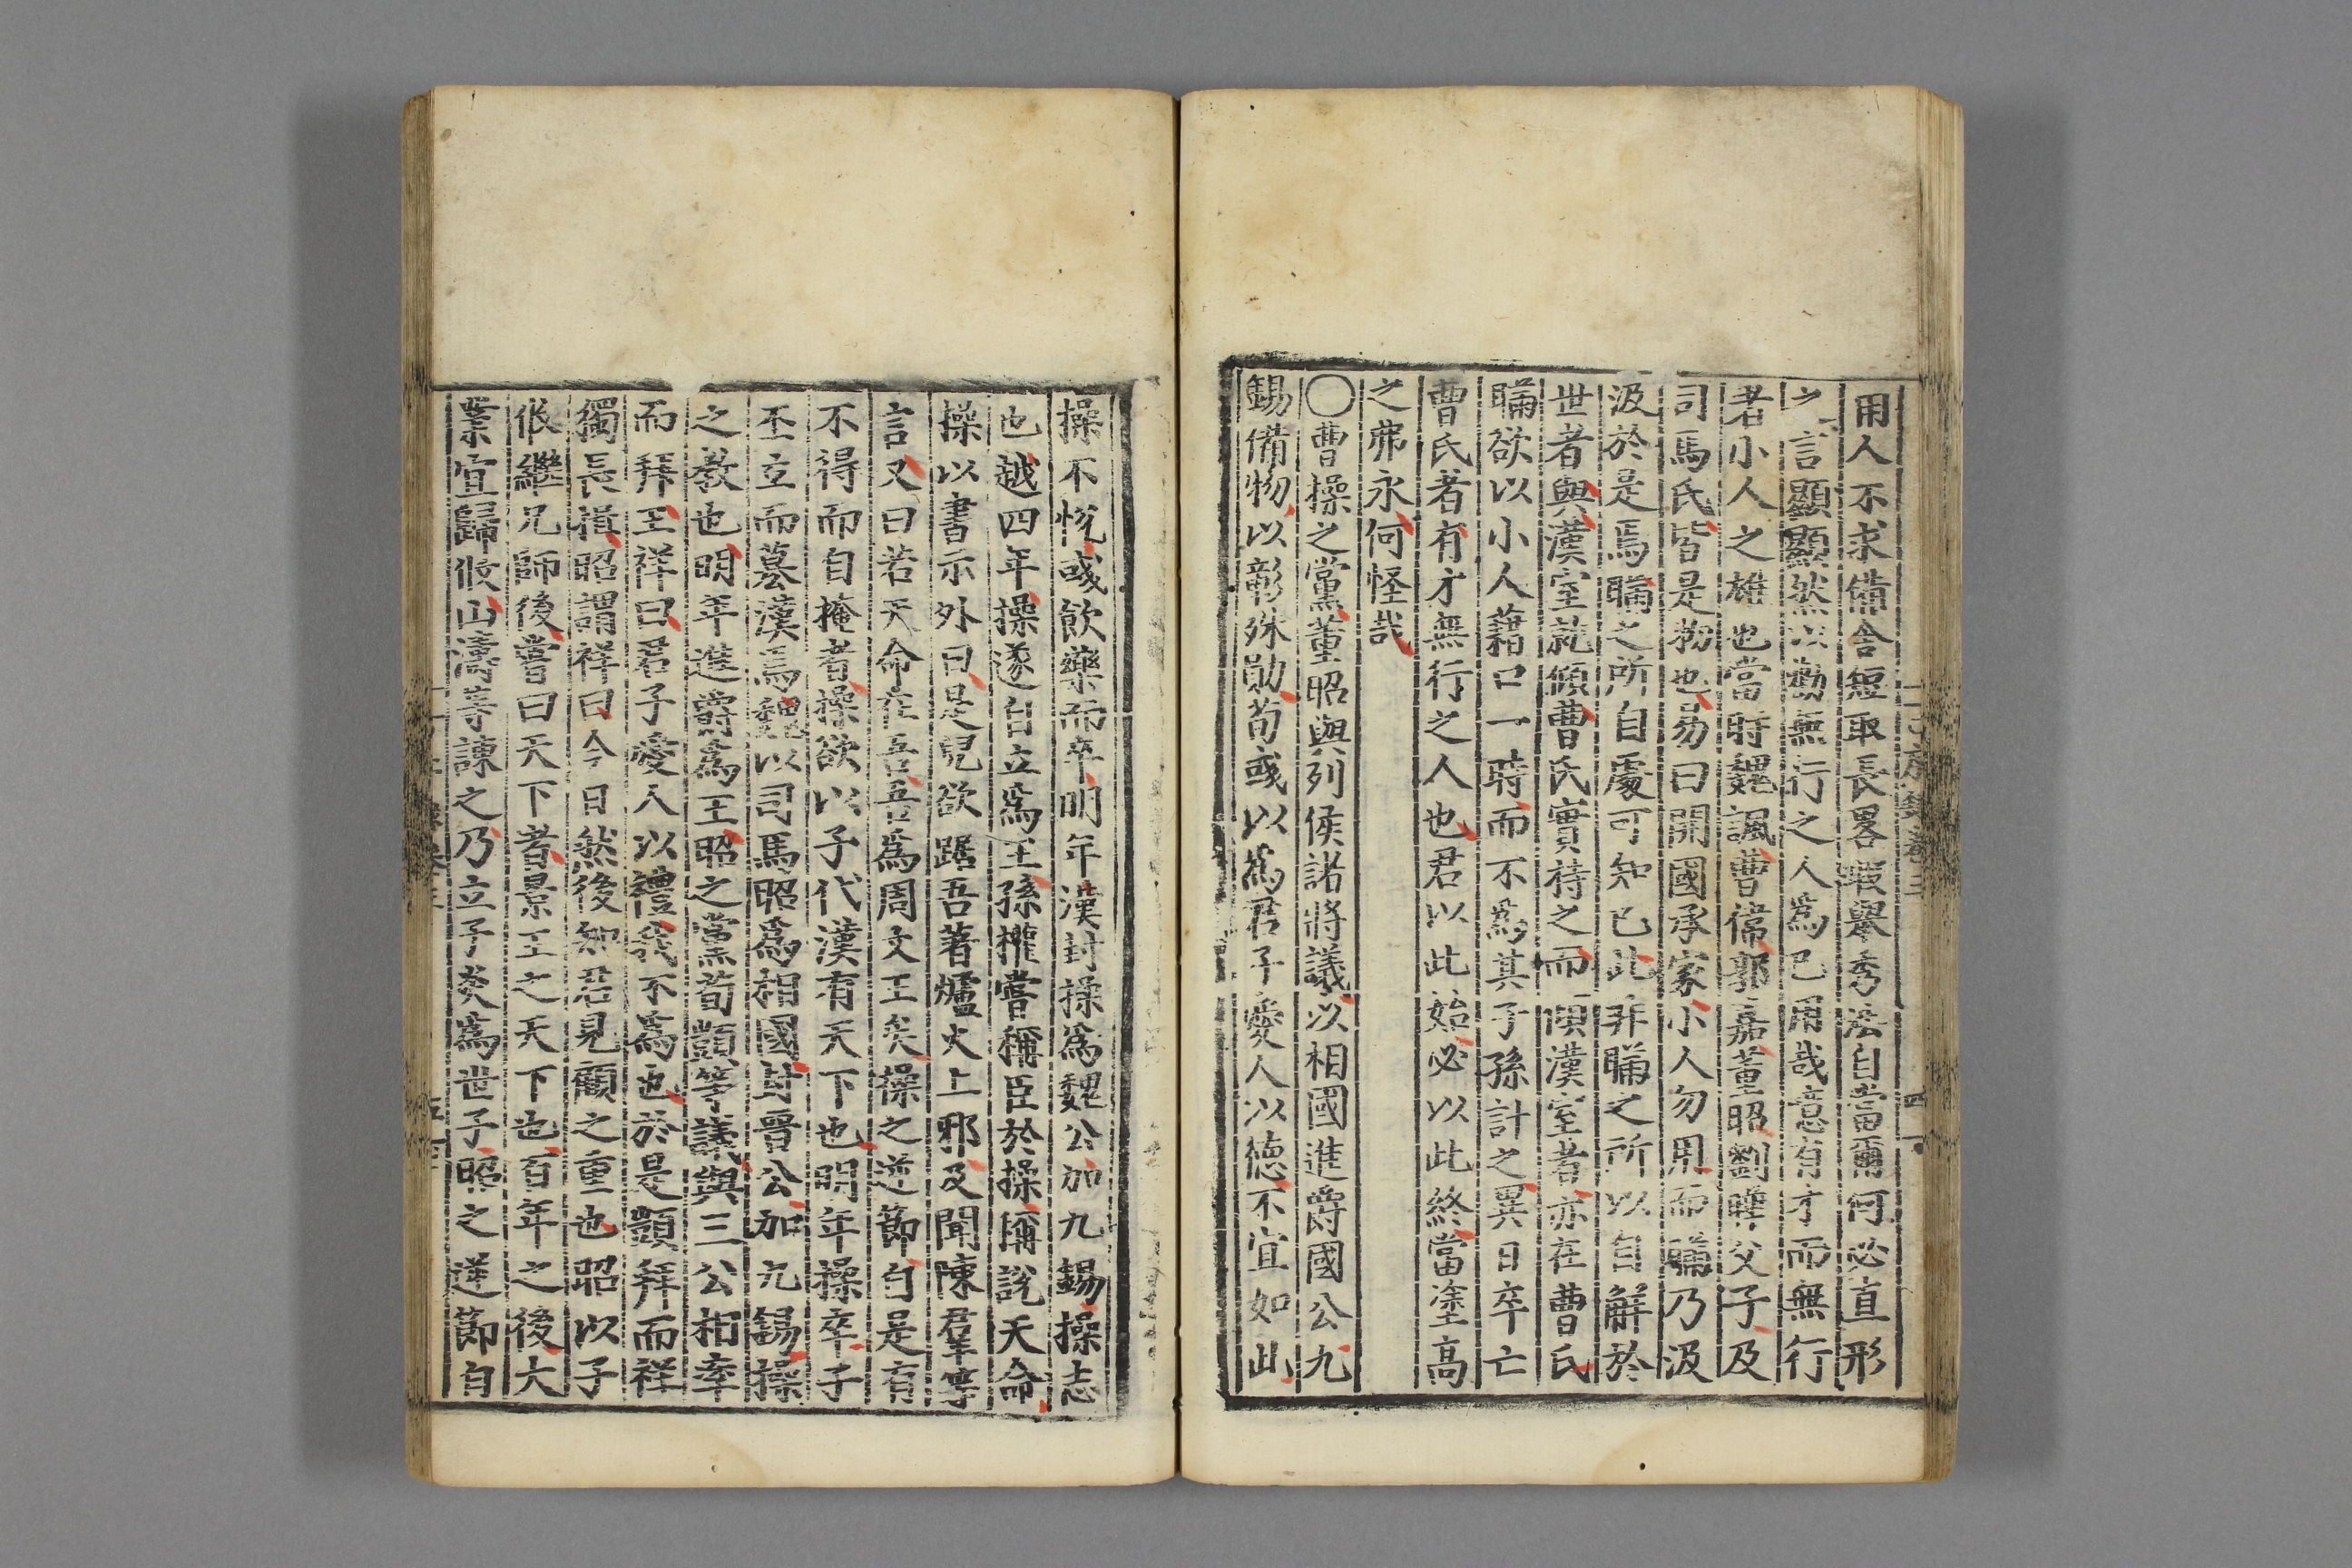 用人不求備舍短取長畧瑕舉秀法自當爾何必直形
之言顯顯然以勸無行之人爲已用哉意有才而無行
者小人之雄也當時魏諷曹偉郭嘉董昭劉曄父子及
司馬氏皆是物也易曰開國承家小人勿用而瞞乃汲
汲於是焉瞞之所自處可知已此非瞞之所以自解於
世者與漢室就傾曹氏實待之而傾漢室者亦在曹氏
瞞欲以小人藉口一時而不爲其子孫計之異日卒亡
曹氏者有才無行之人也君以此始必以此終當塗高
之弗永何怪哉
〇曹操之黨董昭與列侯諸將議以相國進爵國公九
錫備物以彰殊勛荀彧以爲君子愛人以德不宜如此
操不悅彧飲藥而卒明年漢封操爲魏公加九錫操志
也越四年操遂自立爲王孫權嘗稱臣於操稱說天命
操以書示外曰是兒欲踞吾著爐火上邪及聞陳羣等
言又曰若天命在吾吾爲周文王矣操之逆節自是有
不得而自掩者操欲以子代漢有天下也明年操卒子
丕立而墓漢爲魏以司馬昭爲相國封晉公加九錫操
之教也明年進爵爲王昭之黨荀顗等議與三公相率
而拜王祥曰君子愛人以禮我不爲也於是顗拜而祥
獨長揖昭謂祥曰今日然後知君見顧之重也昭以子
攸繼兄師後嘗曰天下者景王之天下也百年之後大
業宜歸攸山濤等諫之乃立子炎爲世子昭之逆節自